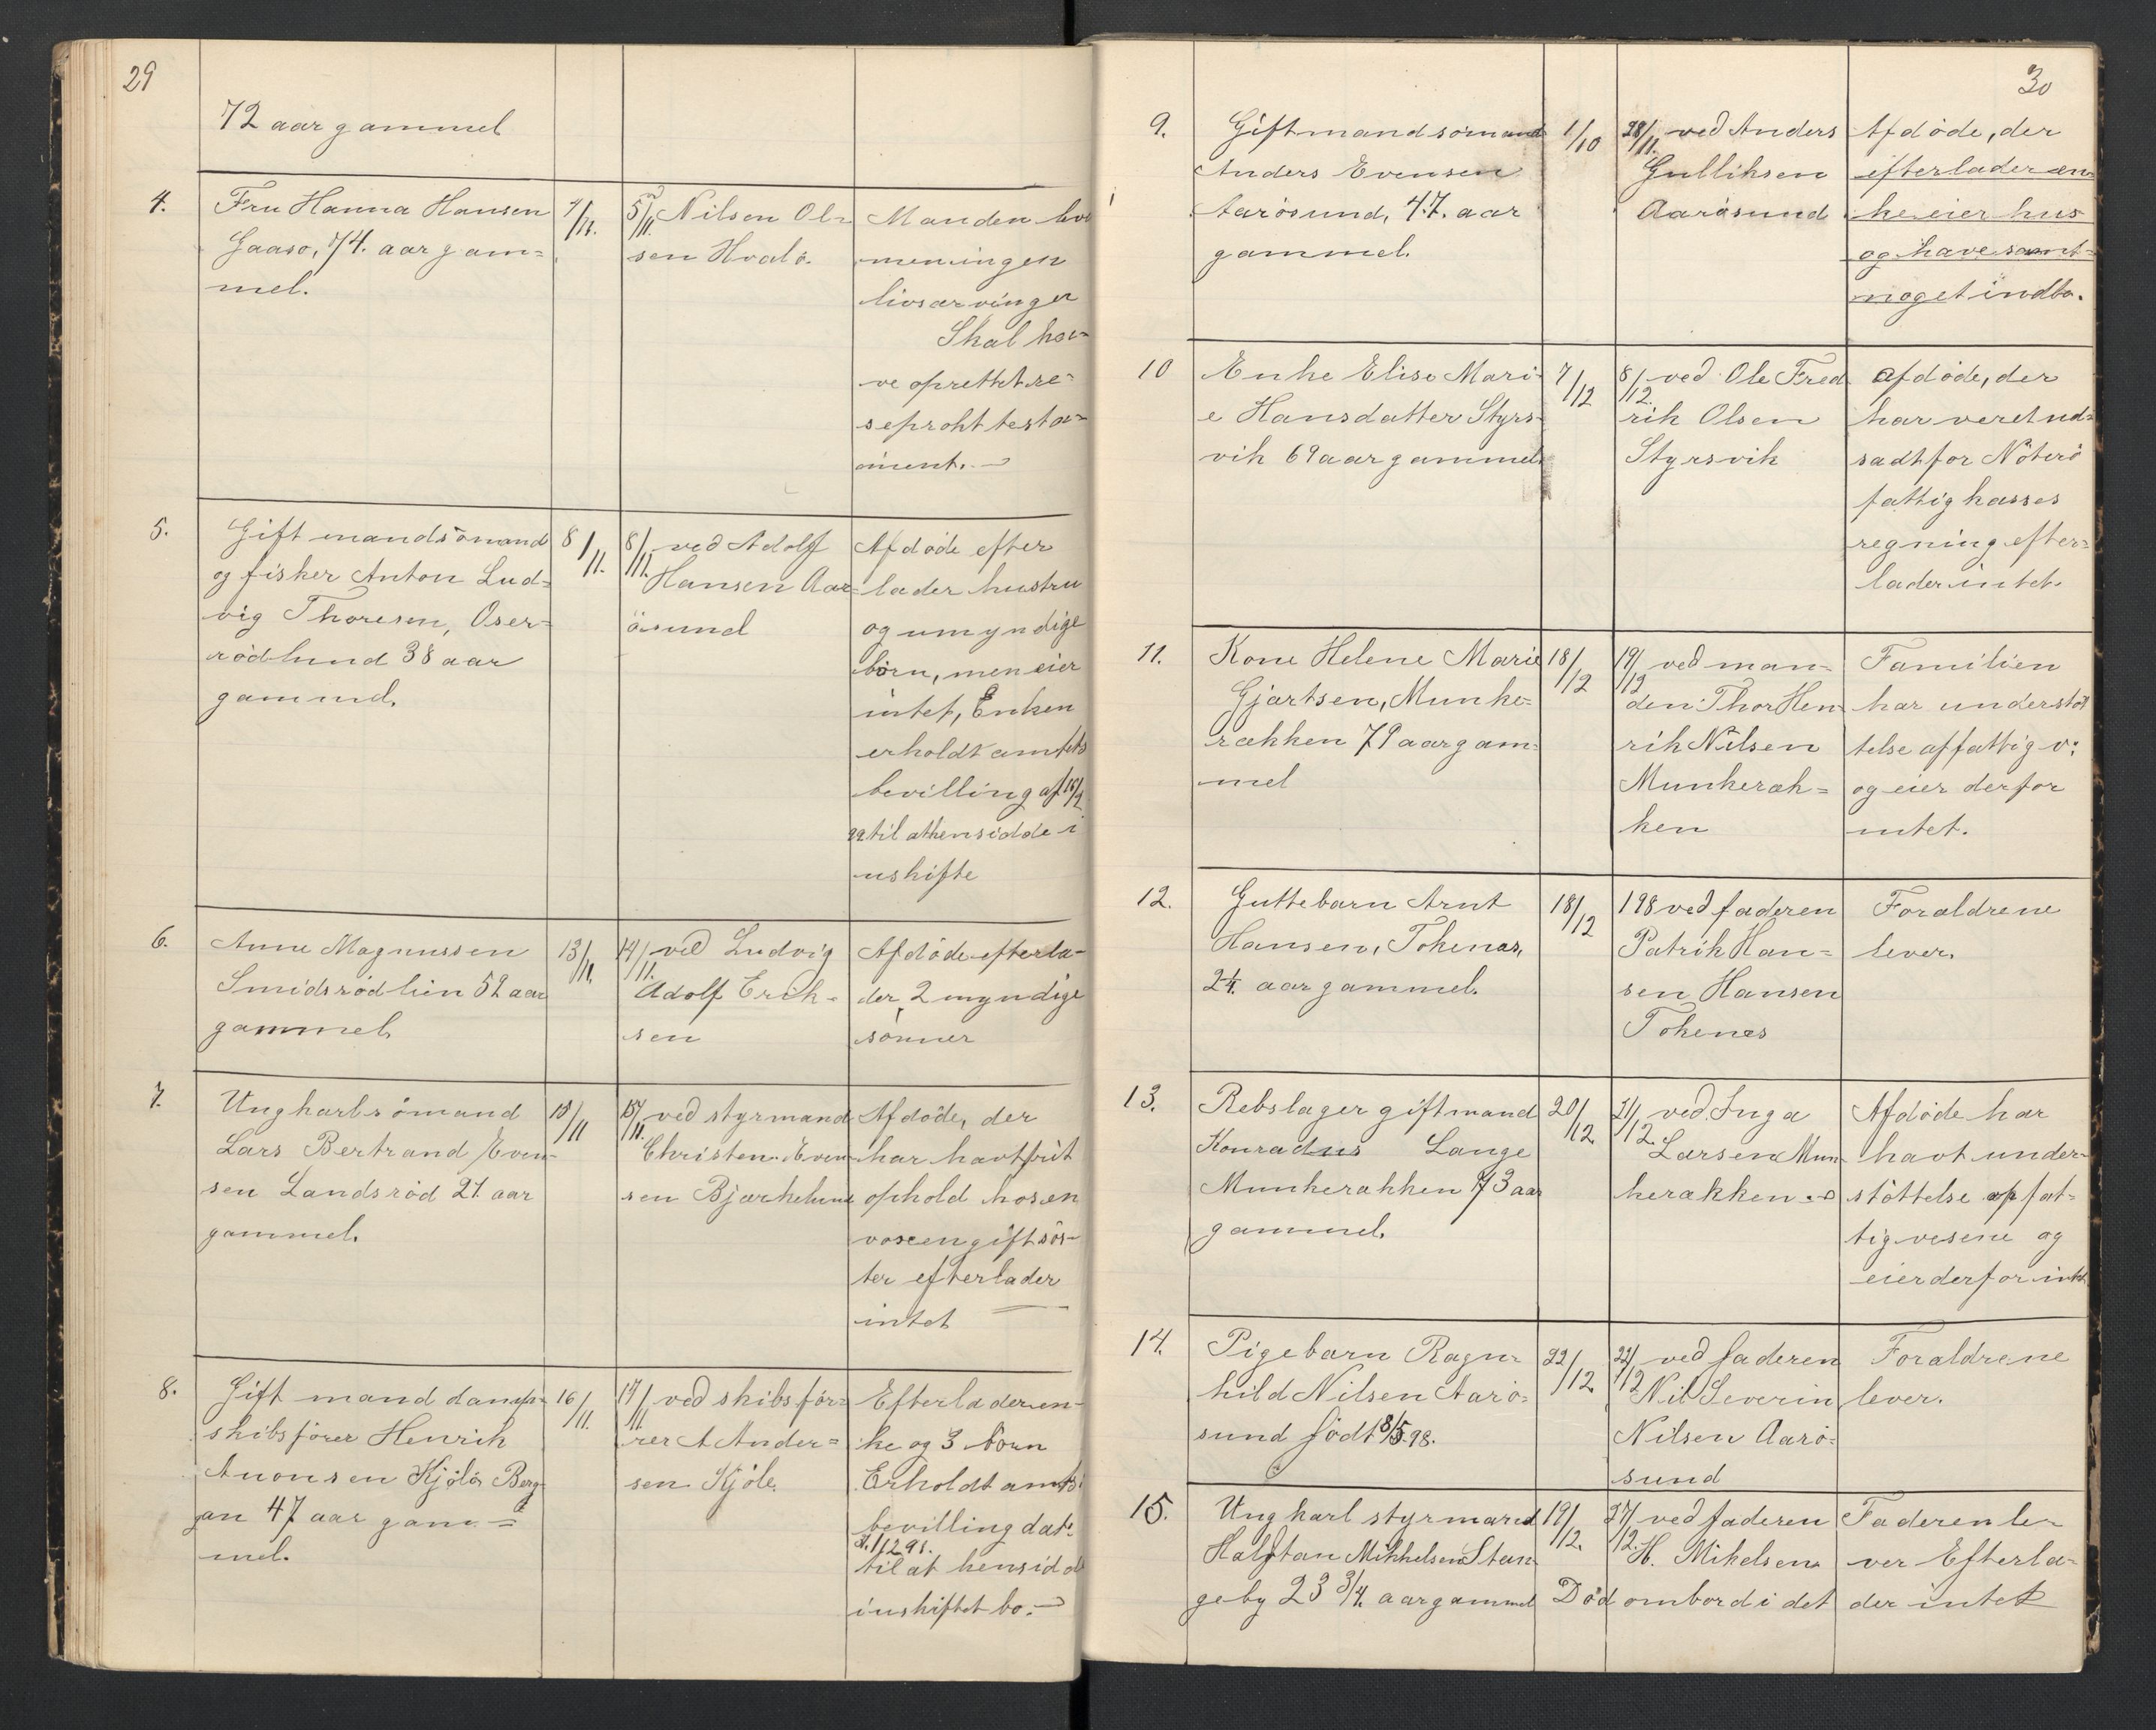 29
72 aar gammel
4.
Fru Hanna Hansen
Gaasø, 74. aar gam=
mel.
5/11. Nilsen Ol=
sen Hvalø.
Manden lev
men ingen
livsarvinger
Skal ha=
ve oprettet re=
seprokt testa=
ment.
5.
Gift mand sömand
og fisker Anton Lud=
vig Thoresen, Oser=
rödlund 38 aar
gammel.
8/11.
8/11. ved Adolf
Hansen Aar=
ösund
Afdöde efter
lader hustru
og umyndige
börn, men eier
intet, Enken
erholdt amtets
bevilling af
til at hensidde i
uskifte
6.
Anne Magnussen
Smidsrödlien 52 aar
gammel
13/11.
14/11. ved Ludvig
Adolf Erik=
sen
Afdöde efterla=
der 2 myndige
sönner
7.
Ungkarl sömand
Lars Bertrand Even=
sen Landsröd 21 aar
gammel.
15/11
15/11. ved styrmand
Christen Even=
sen Bjerkelund
Afdöde, der
har havt frit
ophold hos en
voxen gift sös=
ter efterlader
intet
8.
Gift mand damp=
skibsförer Henrik
Anonsen Kjölö Berg
an 47 aar gam=
mel.
16/11.
17/11. ved skibsför=
rer A Ander=
sen Kjöle.
Efterlader en=
ke og 3 börn
Erholdt amts
bevilling dat.
til at hensidde
i uskiftet bo.
30
9.
Gift mand sömand
Anders Evensen
Aarösund, 47. aar
gammel.
1/10
28/11. ved Anders
Gulliksen
Aarösund
Afdöde, der
efterlader en=
ke eier hus
og have samt
noget indbo.
10
Enke Elise Mari=
e Hansdatter Styrs=
vik 69 aar gammel
7/12
8/12. ved Ole Fred
rik Olsen
Styrsvik
Afdöde, der
har veret ud=
sadt for Nöterö
fattigkasses
regning efter=
lader intet.
11.
Kone Helene Marie
Gjertsen, Munke=
rækken 79 aar gam=
mel
18/12
19/12 ved man=
den Thor Hen
rik Nilsen
Munkeræk=
ken
Familien
har understöt
telse af fattigv:
og eier derfor
intet.
12.
Guttebarn Arnt
Hansen, Tokenæs,
2 1/4. aar gammel.
18/12
198 ved faderen
Patrik Han=
sen Hansen
Tokenes
Foraldrene
lever.
13.
Rebslager gift mand
Konradus Lange
Munkerækken 73 aar
gammel.
20/12.
21/12. ved Inga
Larsen Mun
kerækken.
Afdöde har
havt under=
stöttelse af fat=
tigvesene og
eier derfor intet
14.
Pigebarn Ragn=
hild Nilsen Aarö=
sund födt 8/5.98.
22/12.
22/12 ved faderen
Nils Severin
Nilsen Aarö=
sund
Foraldrene
lever.
15.
Ungkarl styrmand
Halfstan Mikkelsen Stan=
geby 23 3/4. aar gammel
19/12.
27/12. ved faderen
H. Mikelsen
Död ombord i det
Faderen le=
ver Efterla=
der intet